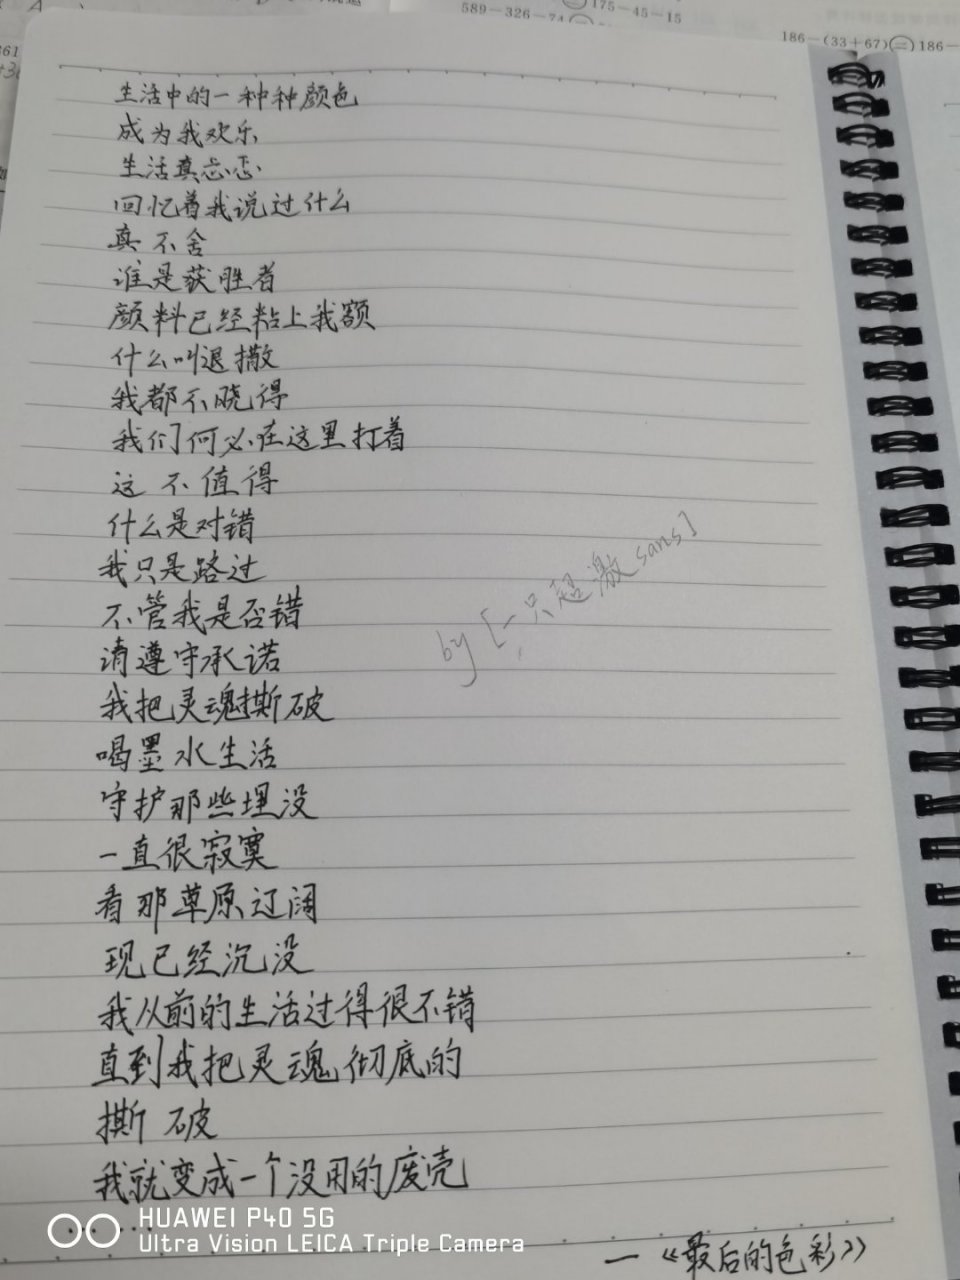 589-326-74 175-45-15
186-(33+67)=186-
生活中的一种种颜色
成为我欢乐
生活真忐忑
回忆着我说过什么
真不舍
谁是获胜者
颜料已经粘上我额
什么叫退撒
我都不晓得
我们何必在这里打着
这不值得
什么是对错
我只是路过
不管我是否错
请遵守承诺
我把灵魂撕破
喝墨水生活
守护那些埋没
一直很寂寞
看那草原辽阔
现已经沉没
我从前的生活过得很不错
直到我把灵魂彻底的
撕破
我就变成一个没用的废壳
……
—《最后的色彩》
by [一只超激sans]
HUAWEI P40 5G
Ultra Vision LEICA Triple Camera